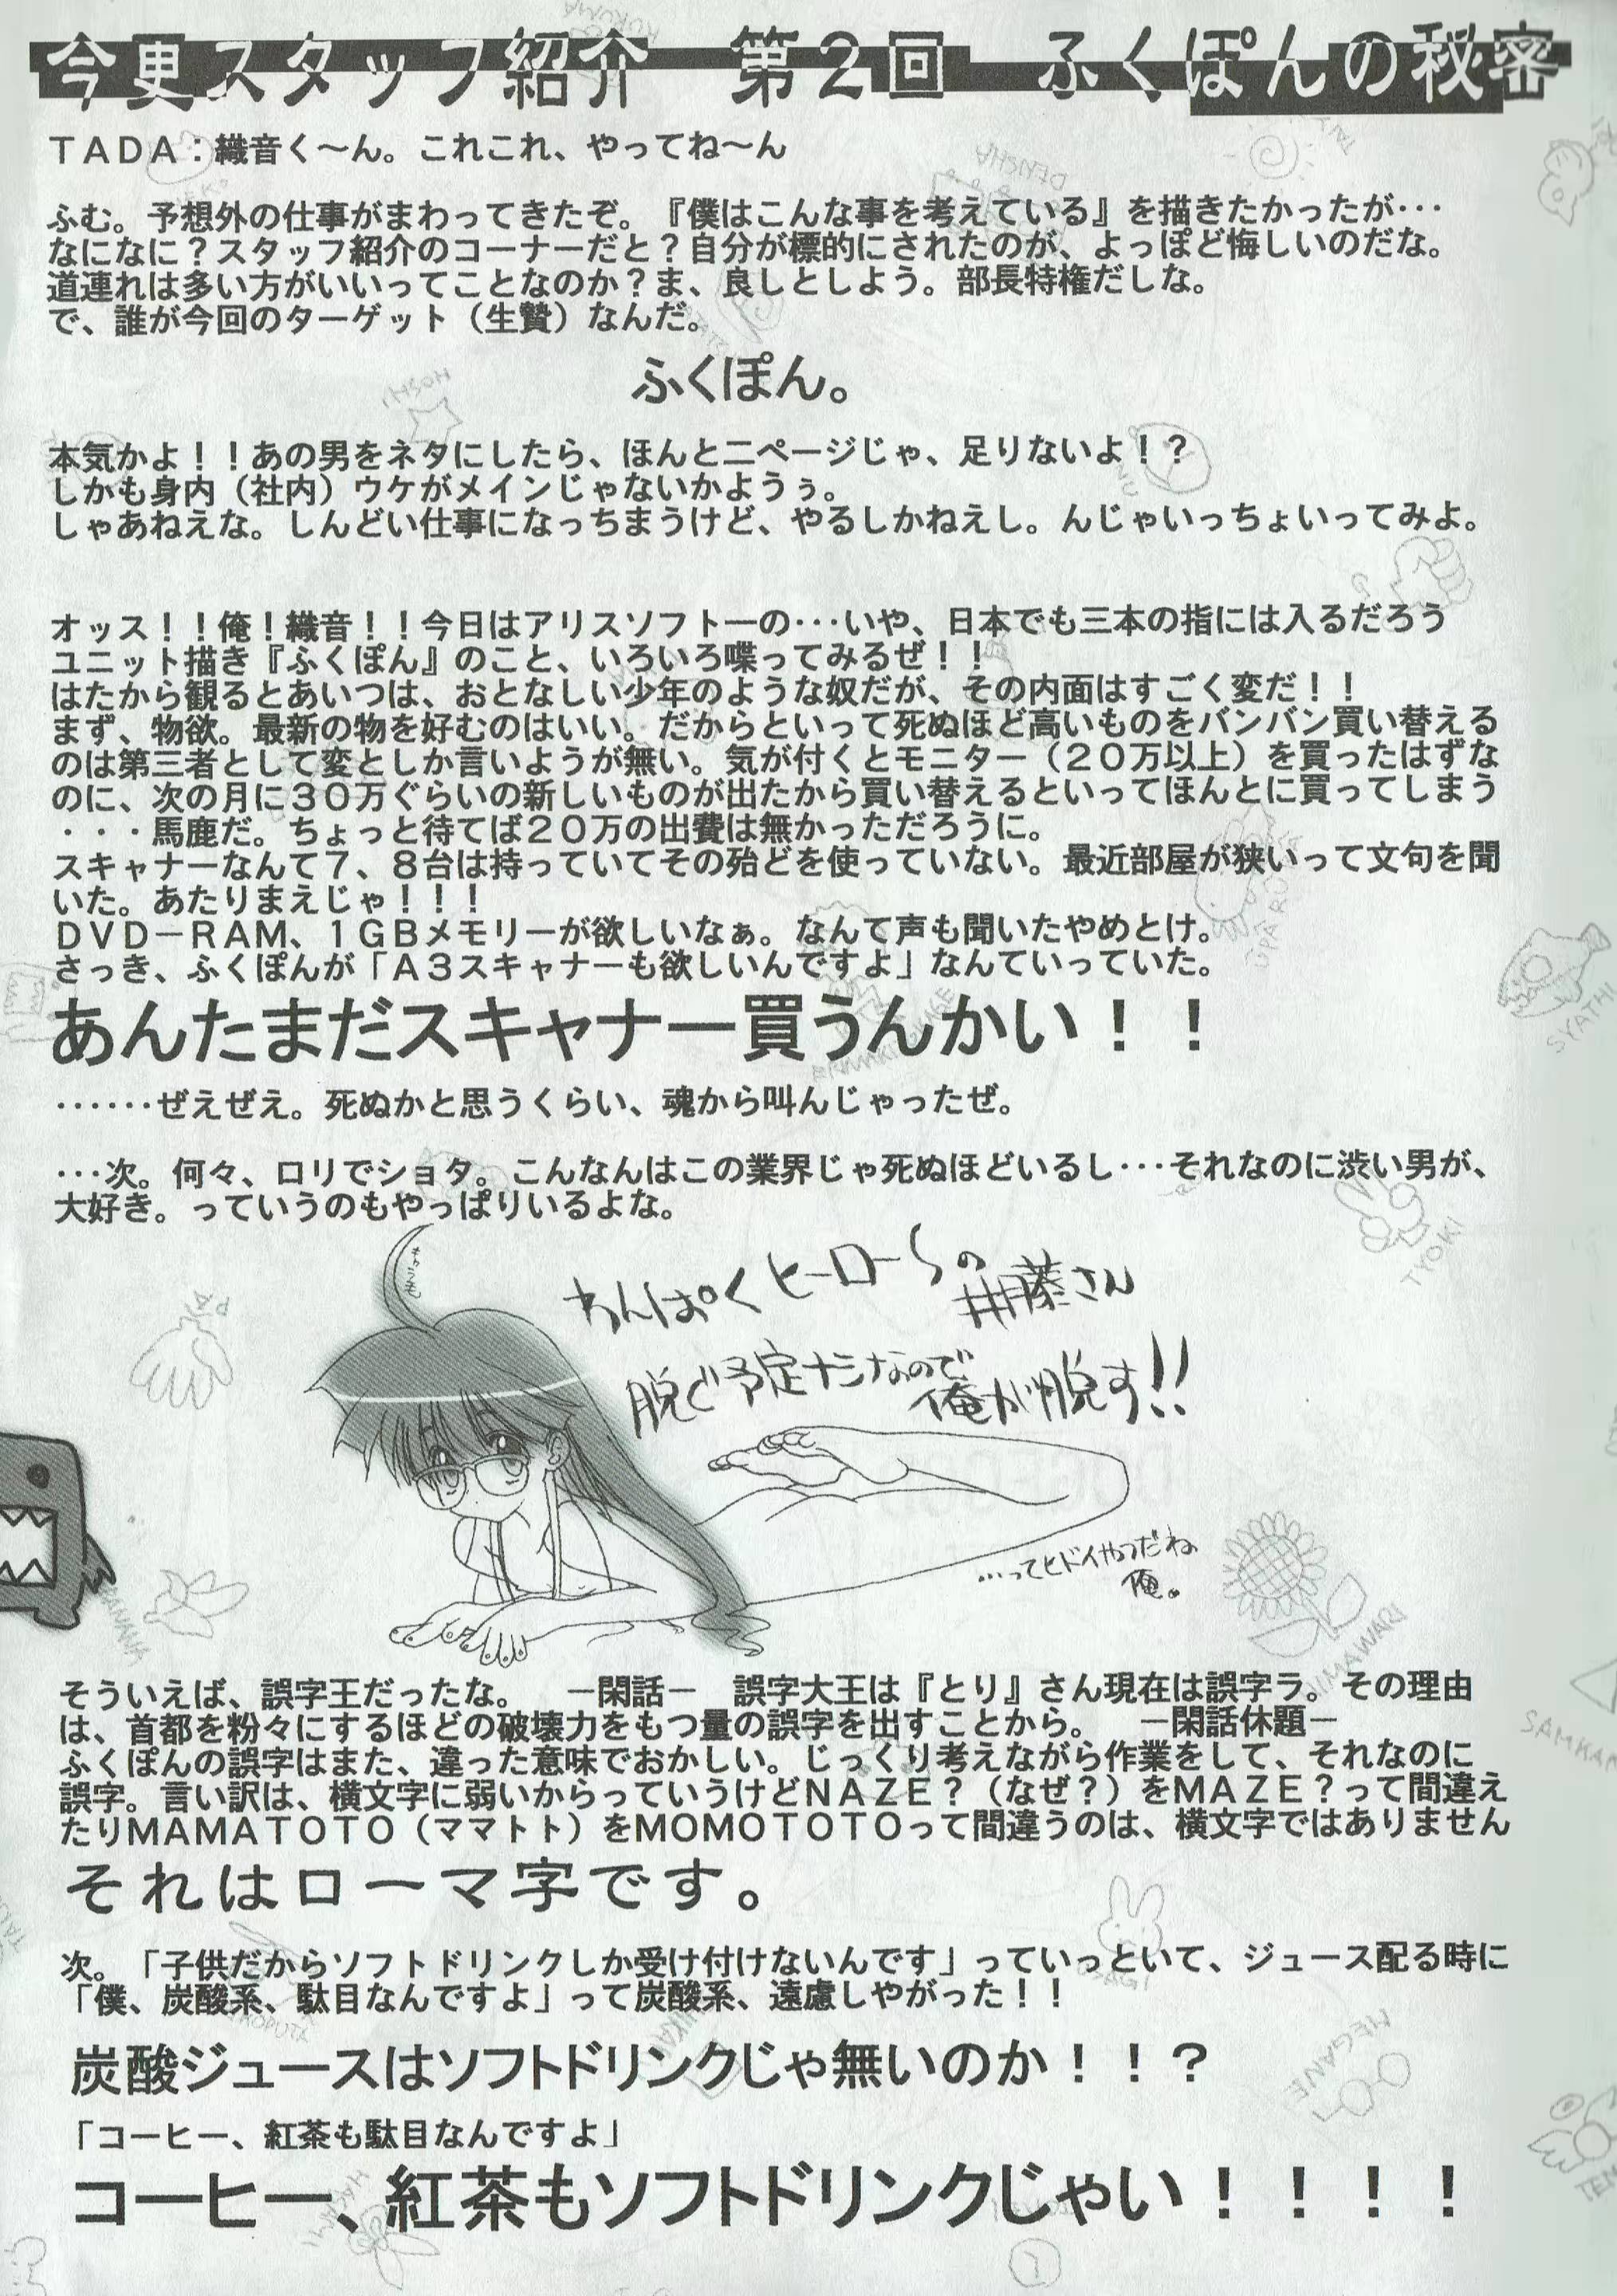 今更スタッフ紹介　第２回　ふくぽんの秘密
ＴＡＤＡ：織音く～ん。これこれ、やってね～ん
ふむ。予想外の仕事がまわってきたぞ。『僕はこんな事を考えている』を描きたかったが・・・
なになに？スタッフ紹介のコーナーだと？自分が標的にされたのが、よっぽど悔しいのだな。
道連れは多い方がいいってことなのか？ま、良しとしよう。部長特権だしな。
で、誰が今回のターゲット（生贄）なんだ。
ふくぽん。
本気かよ！！あの男をネタにしたら、ほんと二ページじゃ、足りないよ！？
しかも身内（社内）ウケがメインじゃないかようぅ。
しゃあねえな。しんどい仕事になっちまうけど、やるしかねえし。んじゃいっちょいってみよ。
オッス！！俺！織音！！今日はアリスソフト一の・・・いや、日本でも三本の指には入るだろう
ユニット描き『ふくぽん』のこと、いろいろ喋ってみるぜ！！
はたから観るとあいつは、おとなしい少年のような奴だが、その内面はすごく変だ！！
まず、物欲。最新の物を好むのはいい。だからといって死ぬほど高いものをバンバン買い替える
のは第三者として変としか言いようが無い。気が付くとモニター（２０万以上）を買ったはずな
のに、次の月に３０万ぐらいの新しいものが出たから買い替えるといってほんとに買ってしまう
・・・馬鹿だ。ちょっと待てば２０万の出費は無かっただろうに。
スキャナーなんて７、８台は持っていてその殆どを使っていない。最近部屋が狭いって文句を聞
いた。あたりまえじゃ！！！
ＤＶＤ－ＲＡＭ、１ＧＢメモリーが欲しいなぁ。なんて声も聞いたやめとけ。
さっき、ふくぽんが「Ａ３スキャナーも欲しいんですよ」なんていっていた。
あんたまだスキャナー買うんかい！！
・・・・・・ぜえぜえ。死ぬかと思うくらい、魂から叫んじゃったぜ。
・・・次。何々、ロリでショタ。こんなんはこの業界じゃ死ぬほどいるし・・・それなのに渋い男が、
大好き。っていうのもやっぱりいるよな。
わんぱくヒーローＳの
井藤さん
脱ぐ予定ナシなので
俺が脱す！！
…ってヒドイやつだね
俺。
そういえば、誤字王だったな。　－閑話－　誤字大王は『とり』さん現在は誤字ラ。その理由
は、首都を粉々にするほどの破壊力をもつ量の誤字を出すことから。　－閑話休題－
ふくぽんの誤字はまた、違った意味でおかしい。じっくり考えながら作業をして、それなのに
誤字。言い訳は、横文字に弱いからっていうけどＮＡＺＥ？（なぜ？）をＭＡＺＥ？って間違え
たりＭＡＭＡＴＯＴＯ（ママトト）をＭＯＭＯＴＯＴＯって間違うのは、横文字ではありません
それはローマ字です。
次。「子供だからソフトドリンクしか受け付けないんです」っていっといて、ジュース配る時に
「僕、炭酸系、駄目なんですよ」って炭酸系、遠慮しやがった！！
炭酸ジュースはソフトドリンクじゃ無いのか！！？
「コーヒー、紅茶も駄目なんですよ」
コーヒー、紅茶もソフトドリンクじゃい！！！！
DENSHA
HOSHI
SYATHI
TYOKI
PA
BANANA
HIMAWARI
MEGANE